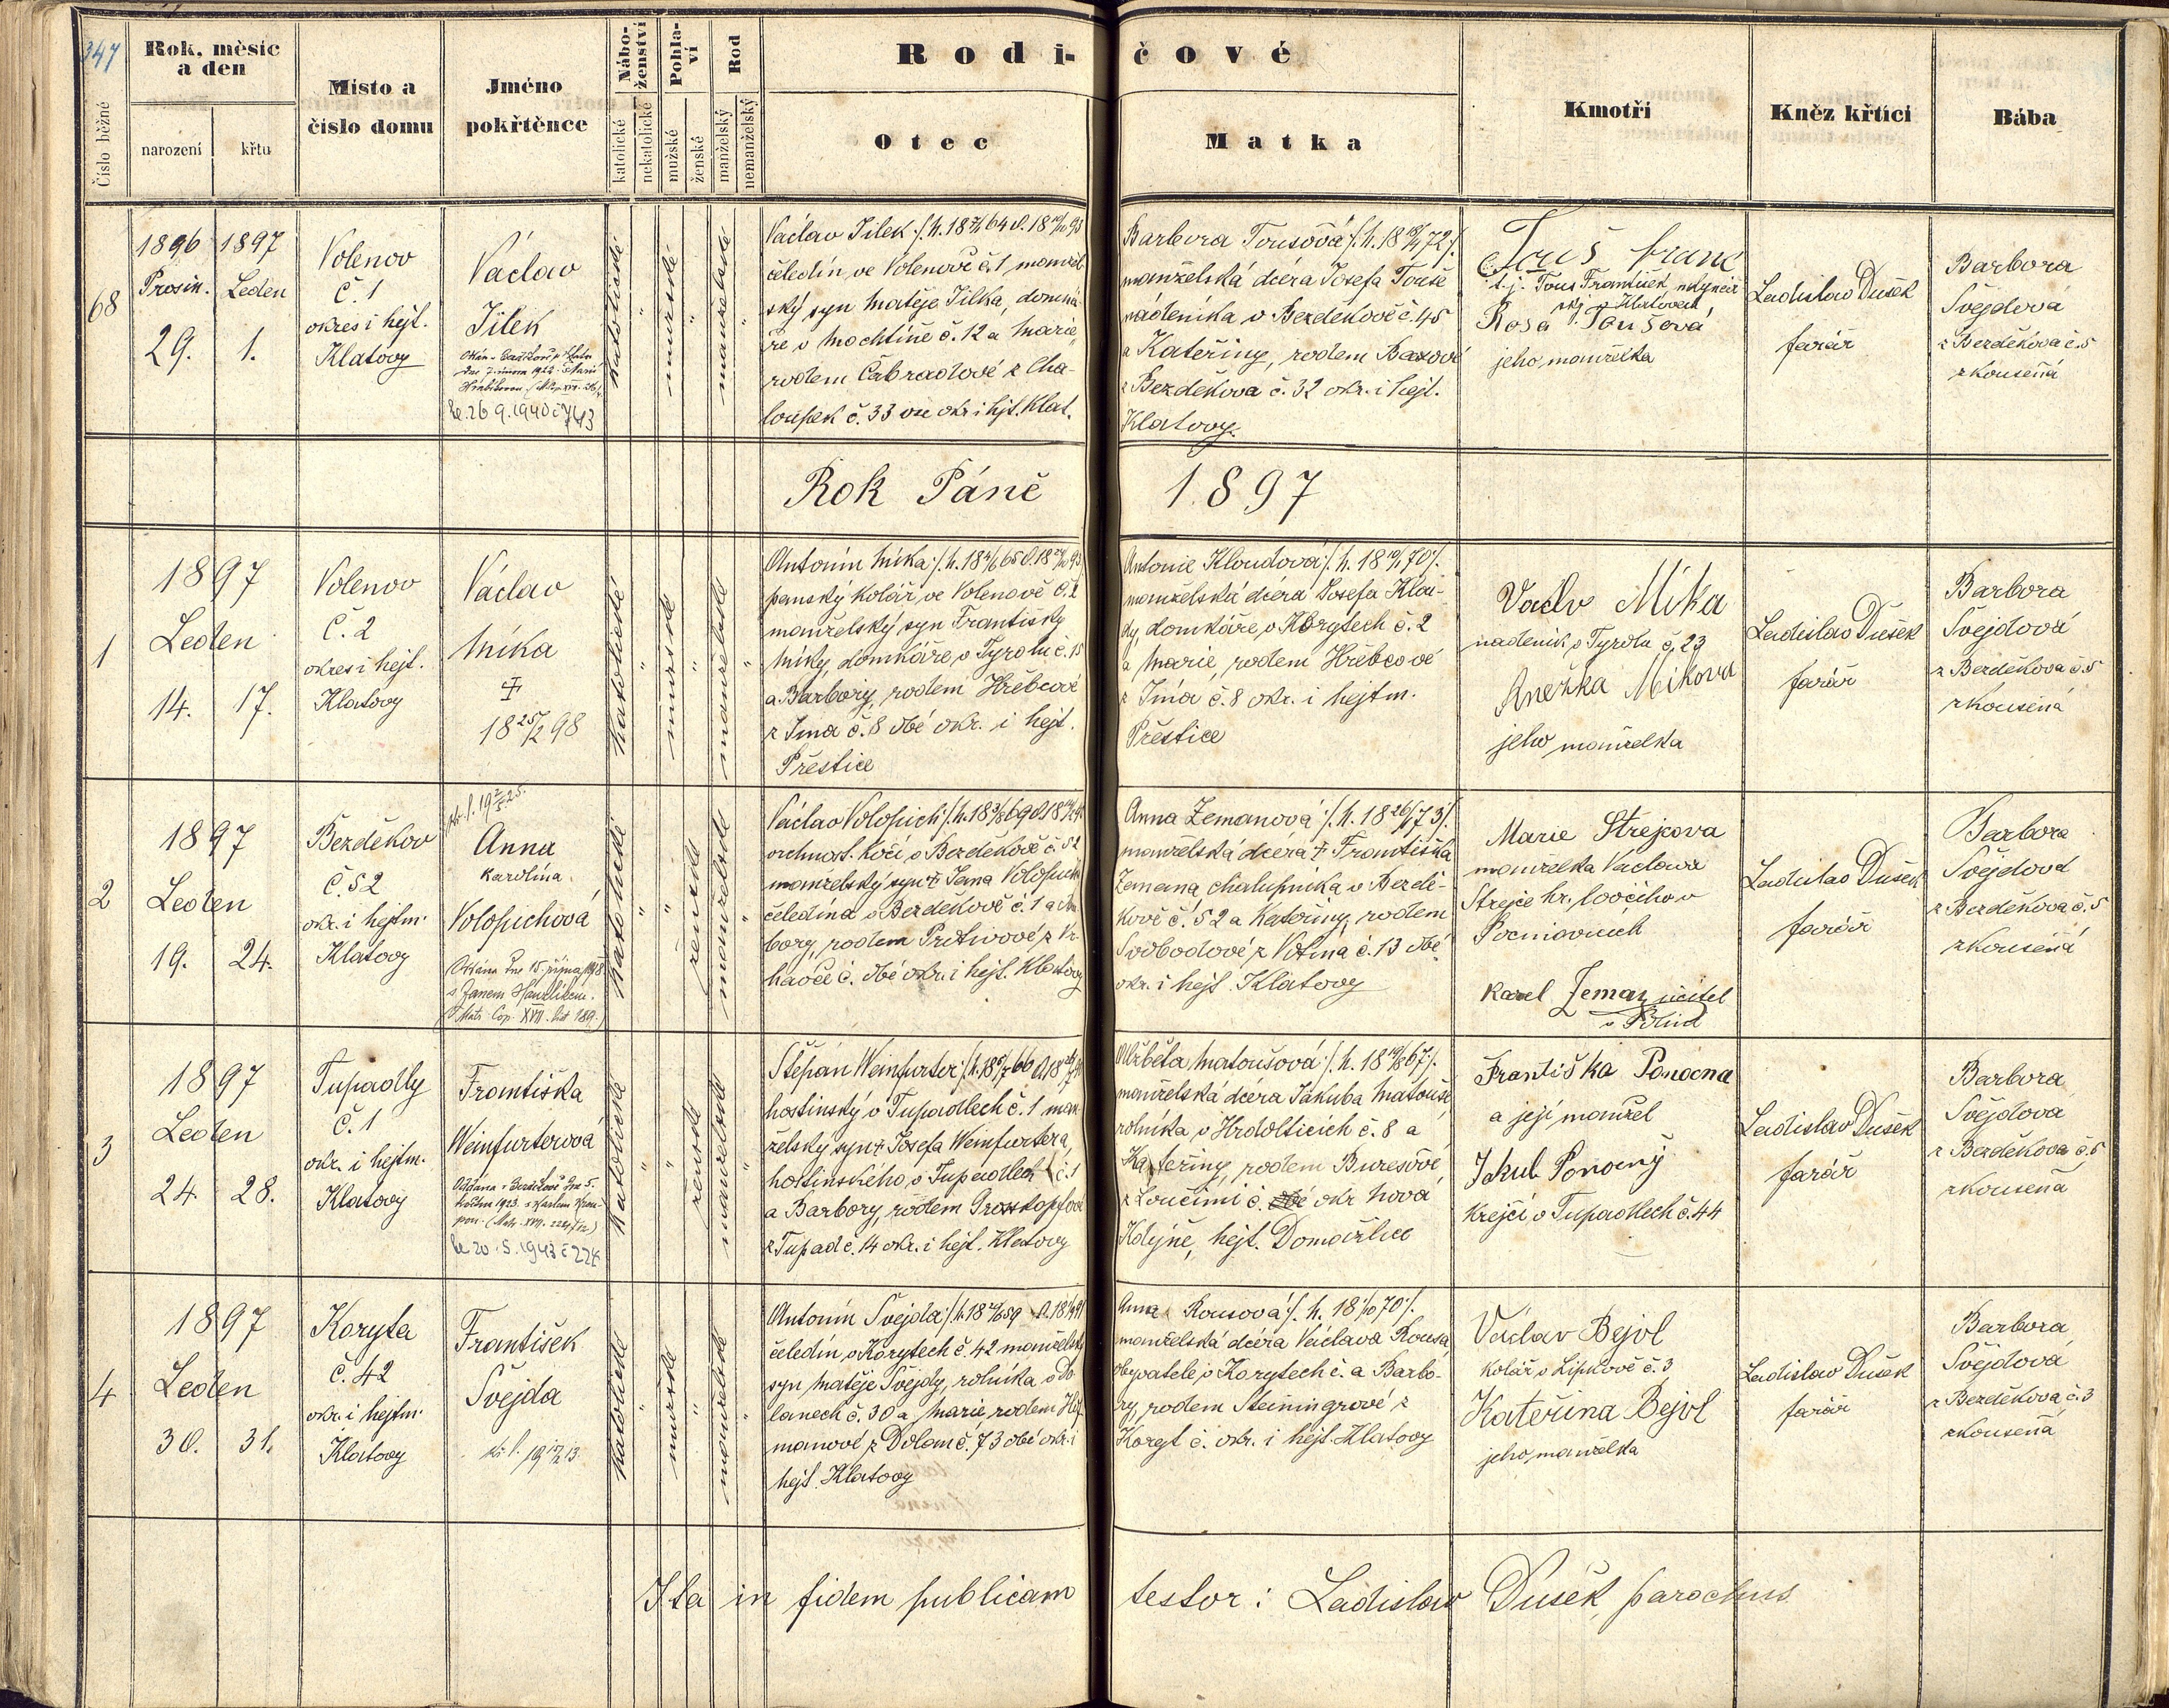 347
Rok, měsíc
a den
Místo a
číslo domu
Jméno
pokřtěnce
Nábo-
ženství
Pohla-
ví
Rod
Rodi-
čové
Kmotři
Kněz křtící
Bába
Číslo běžné
narození
křtu
katolické
nekatolické
mužské
ženské
manželský
nemanželský
Otec
Matka
68
1896 1897
Prosin. Leden
29. 1.
Volenov
č. 1
okres i hejt.
Klatovy
Václav
Jílek
26.9.1940 č 743
katolické
"
mužské
"
manželské
"
Václav Jílek
čeledín ve Volenově č. 1, manžel-
ský syn Matěje Jílka, domká-
ře v Mochtíně č. 12 a Marie
rodem Čabradové z Cha-
loupek č. 33 vše okr. i hjt. Klat.
Barbora Toušová
manželská dcera Josefa Touše
nádeníka v Bezděkově č. 45
a Kateřiny, rodem
z Bezděkova č. 32 okr. i hejt.
Klatovy.
Touš Franc
t. j. Touš František,
Klatovech
Rosa Toušová
jeho manželka
Ladislav Dušek
farář
Barbora
Švejdová
z Bezděkova č. 5
zkoušená
Rok Páně
1897
1
1897
Leden
14. 17.
Volenov
č. 2
okres i hejt.
Klatovy
Václav
Míka
18 25/2 98
katolické
"
mužské
"
manželské
"
Antonín Míka
panský kolář ve Volenově č. 2
manželský syn Františky
Míky, domkáře v Tyrolu č. 15
a Barbory, rodem Hřebcové
z Jína č. 8 obé okr. i hejt.
Přeštice
Antonie Kloudová
manželská dcera Josefa Klou-
dy, domkáře v Korytech č. 2
a Marie, rodem Hřebcové
z Jína č. 8 okr. i hejtm.
Přeštice
Václv Míka
nádeník v Tyrolu č. 23
Anežka Mikova
jeho manželka
Ladislav Dušek
farář
Barbora
Švejdová
z Bezděkova č. 5
zkoušená
2
1897
Leden
19. 24.
Bezděkov
č. 52
okr. i hejtm.
Klatovy
Anna
Karolina
Volopichová
s Janem Hanzlíkem.
katolické
"
"
ženské
manželské
"
Václav Volopich
vrchnost. kočí v Bezděkově č. 52
manželský syn † Jana Volopicha
čeledína v Bezděkově č. 1 a
bory, rodem
č. obé okr. i hejt. Klatovy
Anna Zemanová
manželská dcera † Františka
Zemana, chalupníka v Bezdě-
kově č. 52 a Kateřiny, rodem
Svobodové z Votína č. 13 obé
okr. i hejt. Klatovy
Marie Strejcova
manželka Václava
Strejce
Karel Zeman učitel
Ladislav Dušek
farář
Barbora
Švejdová
z Bezděkova č. 5
zkoušená
3
1897
Leden
24. 28.
Tupadly
č. 1
okr. i hejtm.
Klatovy
Františka
Weinfurterová
20.5.1943 č 224
katolické
"
"
ženské
manželské
"
Štěpán Weinfurter
hostinský v Tupadlech č. 1 man-
želský syn † Josefa Weinfurtera,
hostinského v Tupadlech č. 1
a Barbory, rodem Grosskopfové
z Tupad č. 14 okr. i hejt. Klatovy
Alžběta Matoušová
manželská dcera Jakuba Matouše
rolníka v Hrdolticích č. 8 a
Kateřiny, rodem Burešové
z Loučimi č. okr Nová
Kdyně, hejt. Domažlice
Františka Ponocna
a její manžel
Jakub Ponocný
krejčí v Tupadlech č. 44
Ladislav Dušek
farář
Barbora
Švejdová
z Bezděkova č. 5
zkoušená
4
1897
Leden
30. 31.
Koryta
č. 42
okr. i hejtm.
Klatovy
František
Švejda
katolické
"
mužské
"
manželské
"
Antonín Švejda
čeledín v Korytech č. 42 manželský
syn Matěje Švejdy, rolníka v Do-
lanech č. 30 a Marie rodem
manové z Dolan č. 73 obé okr. i
hejt. Klatovy
Anna Rousová
manželská dcera Václava Rousa,
obyvatele v Korytech č. a Barbo-
ry, rodem Steiningrové z
Koryt č. okr. i hejt. Klatovy
Václav Bejvl
kolář v Lipkově č. 3
Kateřina Bejvl
jeho manželka
Ladislav Dušek
farář
Barbora
Švejdová
z Bezděkova č. 3
zkoušená
Ita in fidem publicam testor: Ladislav Dušek, parochus